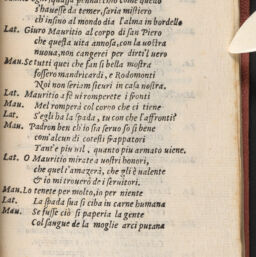 s'hauesse da temer, saria mistiero
ch'insino al mondo dia l'alma in bordello
Lat. Giuro Mauritio al corpo di san Piero
che questa uita annosa, con la uostra
nuoua, non cangerei per dirti'l uero
Mau. Se tutti quei che fan sì bella mostra
fossero mandricardi, e Rodomonti
Noi non seriam sicuri in casa nostra.
Lat. Mauritio a fè ui romperete i fronti
Mau. Mel romperà col corno che ci tiene
Lat. S'egli ha la spada, tu con che l'affronti?
Mau. Padron ben ch'io sia seruo so si bene
com'alcun di cotesti frappatori
Tant'è piu uil, quanto piu armato uiene.
Lat. O Mauritio mirate a uostri honori,
che quel t'amazerà, che gli è ualente
& io mi trouerò de i seruitori.
Mau. Lo tenete per molto, io per niente
Lat. La spada sua si ciba in carne humana
Mau. Se fusse ciò si paperia la gente
Col sangue de la moglie arci putana